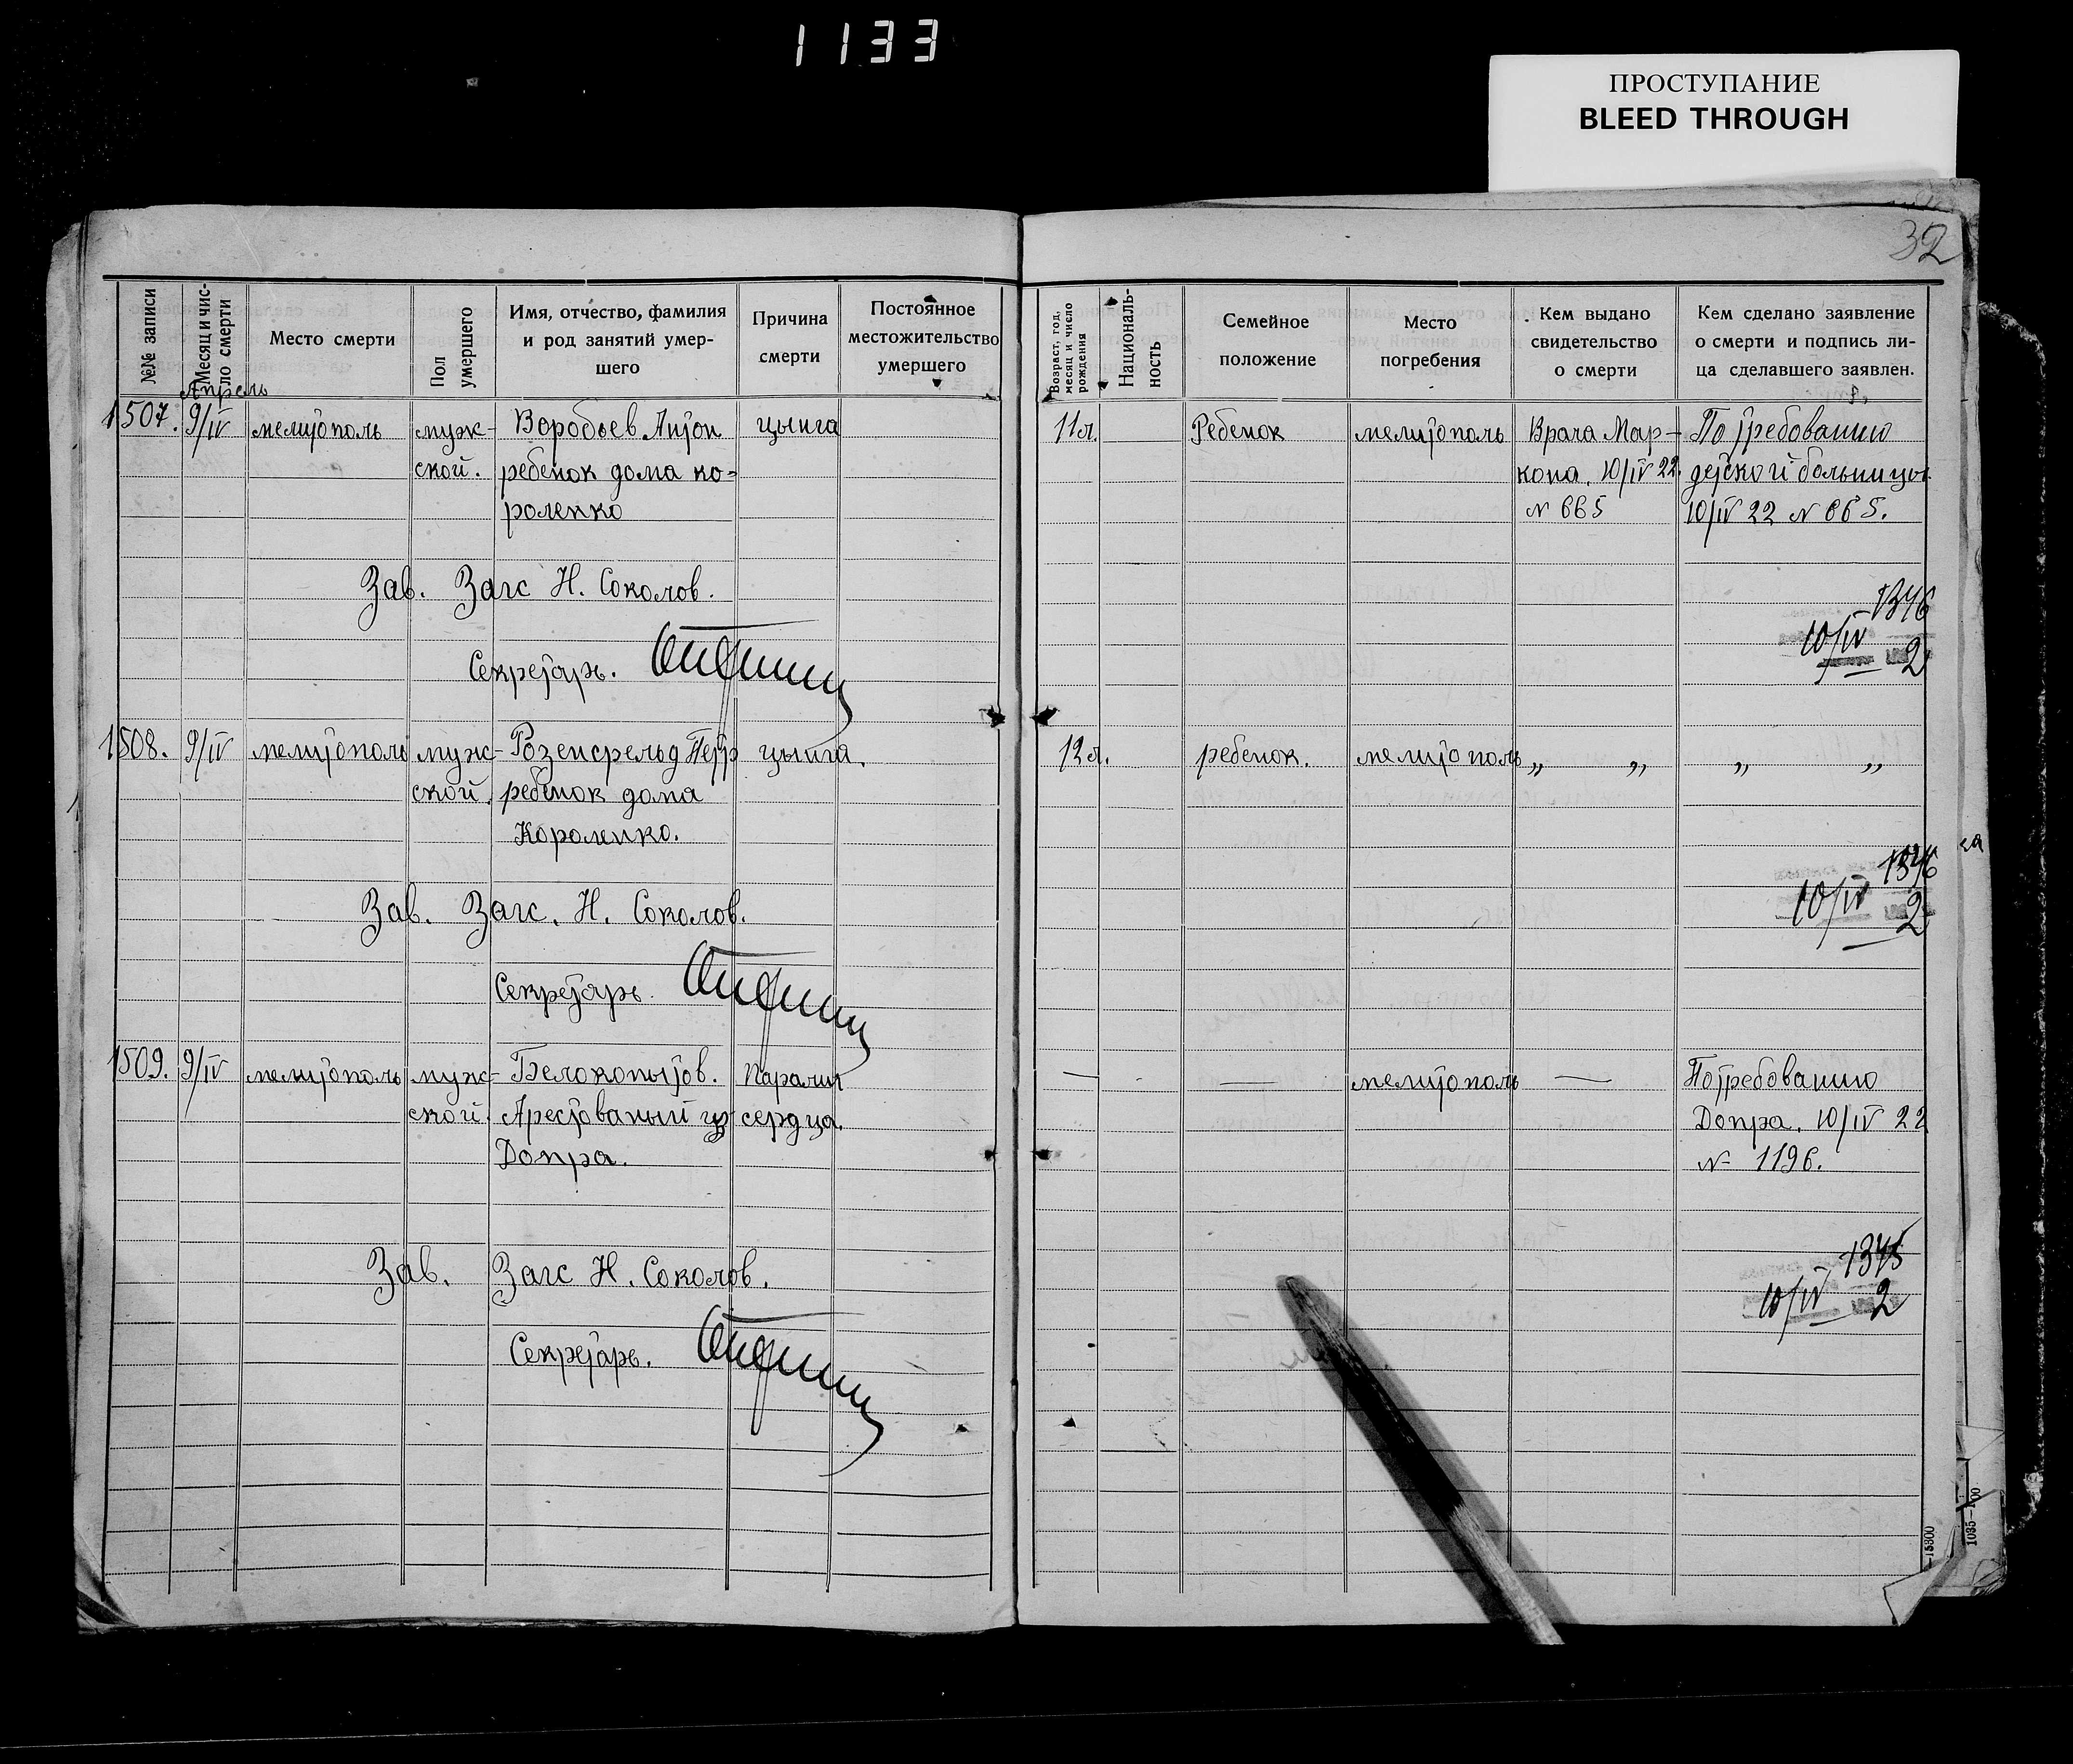 1133
ПРОСТУПАНИЕ
BLEED THROUGH
32
№№ записи
Месяц и чис-
ло смерти
Место смерти
Пол
умершего
Имя, отчество, фамилия
и род занятий умер-
шего
Причина
смерти
Постоянное
местожительство
умершего
Возраст, год,
месяц и число
рождения
Националь-
ность
Семейное
положение
Место
погребения
Кем выдано
свидетельство
о смерти
Кем сделано заявление
о смерти и подпись ли-
ца сделавшего заявлен.
Апрель
1507. 9/IV мелитополь муж- Воробьев Антон цынга 11л. Ребенок мелитополь Врача Мар- По требованию
ской. ребенок дома ко= кона. 10/IV 22. детской больницы
роленко N 665 10/IV 22 N 665.
Зав. Загс Н. Соколов.
1346
10/IV 2
Секретарь.
1508. 9/IV мелитополь муж- Розенфельд Петр цынга. 12л. ребенок. мелитополь „ „ „ „
ской. ребенок дома
Короленко.
1346
10/IV 2
Зав. Загс. Н. Соколов.
Секретарь.
1509. 9/IV мелитополь муж- Белокопытов. Паралич — — мелитополь — По требованию
ской. Арестованый из сердца. Допра. 10/IV 22
Допра. N- 1196.
Зав. Загс Н. Соколов.
1345
10/IV 2
Секретарь.
—15800
1035—